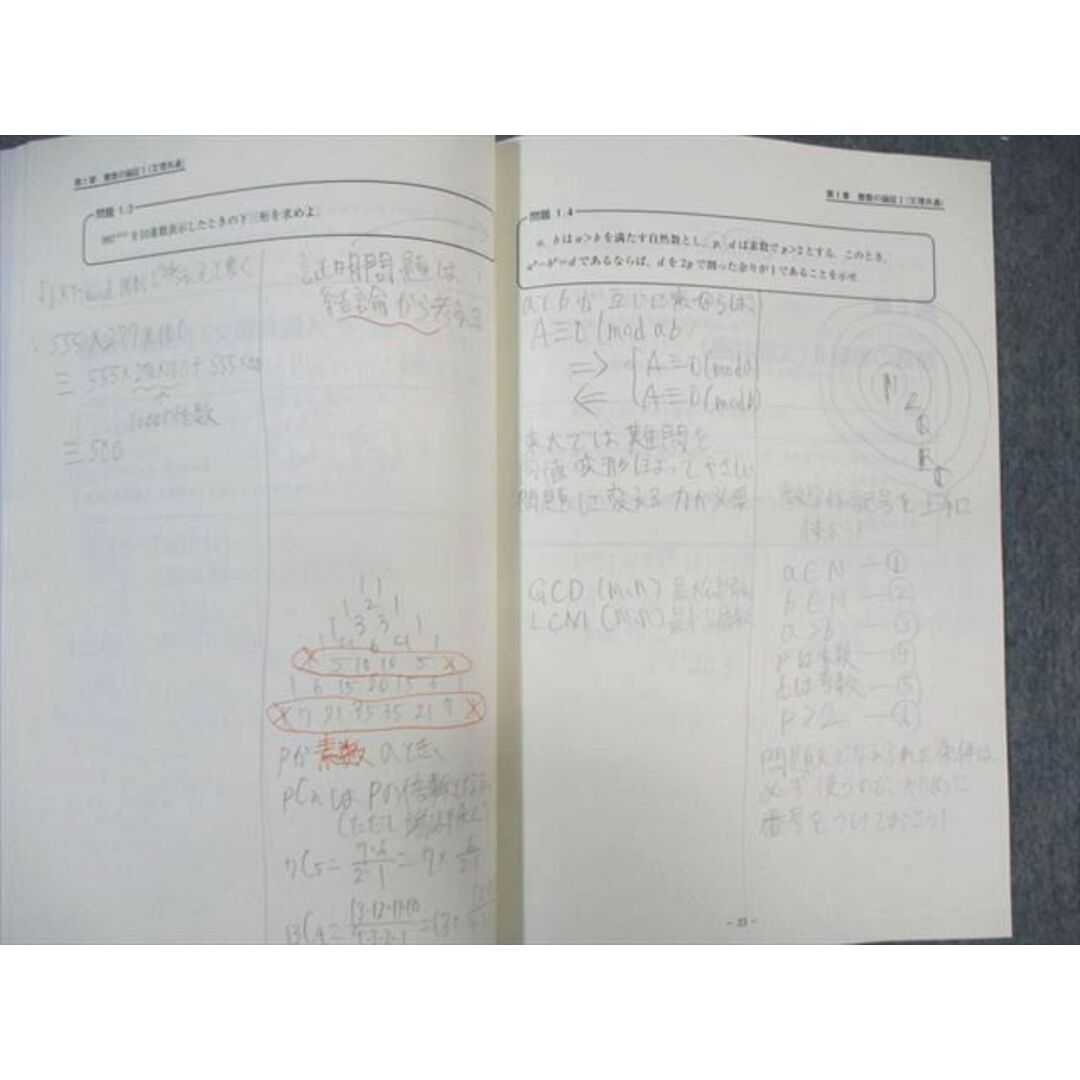 第1章 整数の論証I(文理共通)
問題 1.3
を10進数表示したときの下三桁を求めよ.
証明問題は,
結論から考える
555×
≡
1000の倍数
≡500
1 1
1 2 1
1 3 3 1
1 4 6 4 1
5 10 10 5
1 6 15 20 15 6 1
7 21 35 35 21 7
Pが素数のとき、
PCnはPの倍数となる
(ただし端は除く)
7C5=7·6/2·1=7×6/2·1
13C4=13·12·11·10/4·3·2·1=13×
第1章 整数の論証I(文理共通)
問題 1.4
a, bはa>bを満たす自然数とし, p, dは素数でp>2とする. このとき,
a^p-b^p=dであるならば, dを2pで割った余りが1であることを示せ.
aとbが互いに素ならば,
A≡0(mod ab)
⇒ A≡0(mod a)
⇐ A≡0(mod b)
N
Z
Q
R
C
東大では難問を
同値変形によってやさしい
問題に変える力が必要
数学的な記号を上手に
使おう!
GCD(m,n) 最大公約数
LCM(m,n) 最小公倍数
a∈N―①
b∈N―②
a>b―③
pは素数―④
dは素数―⑤
p>2―⑥
問題文で与えられた条件は
必ず使うので、
番号をつけておこう!
- 23 -